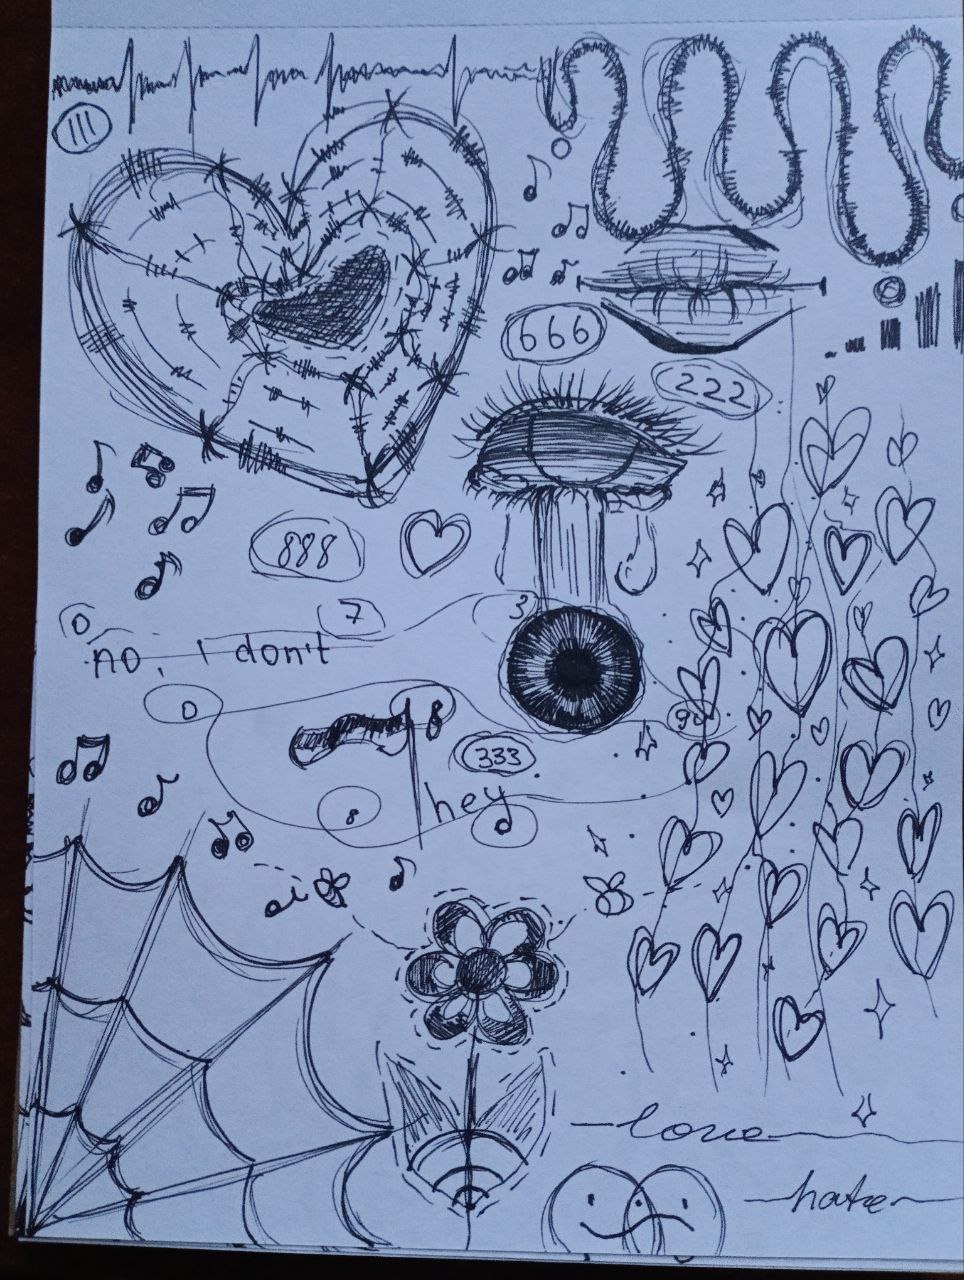 111
666
222
888
7
3
0
no, I don't
0
8
90
333
8
hey
love
hate